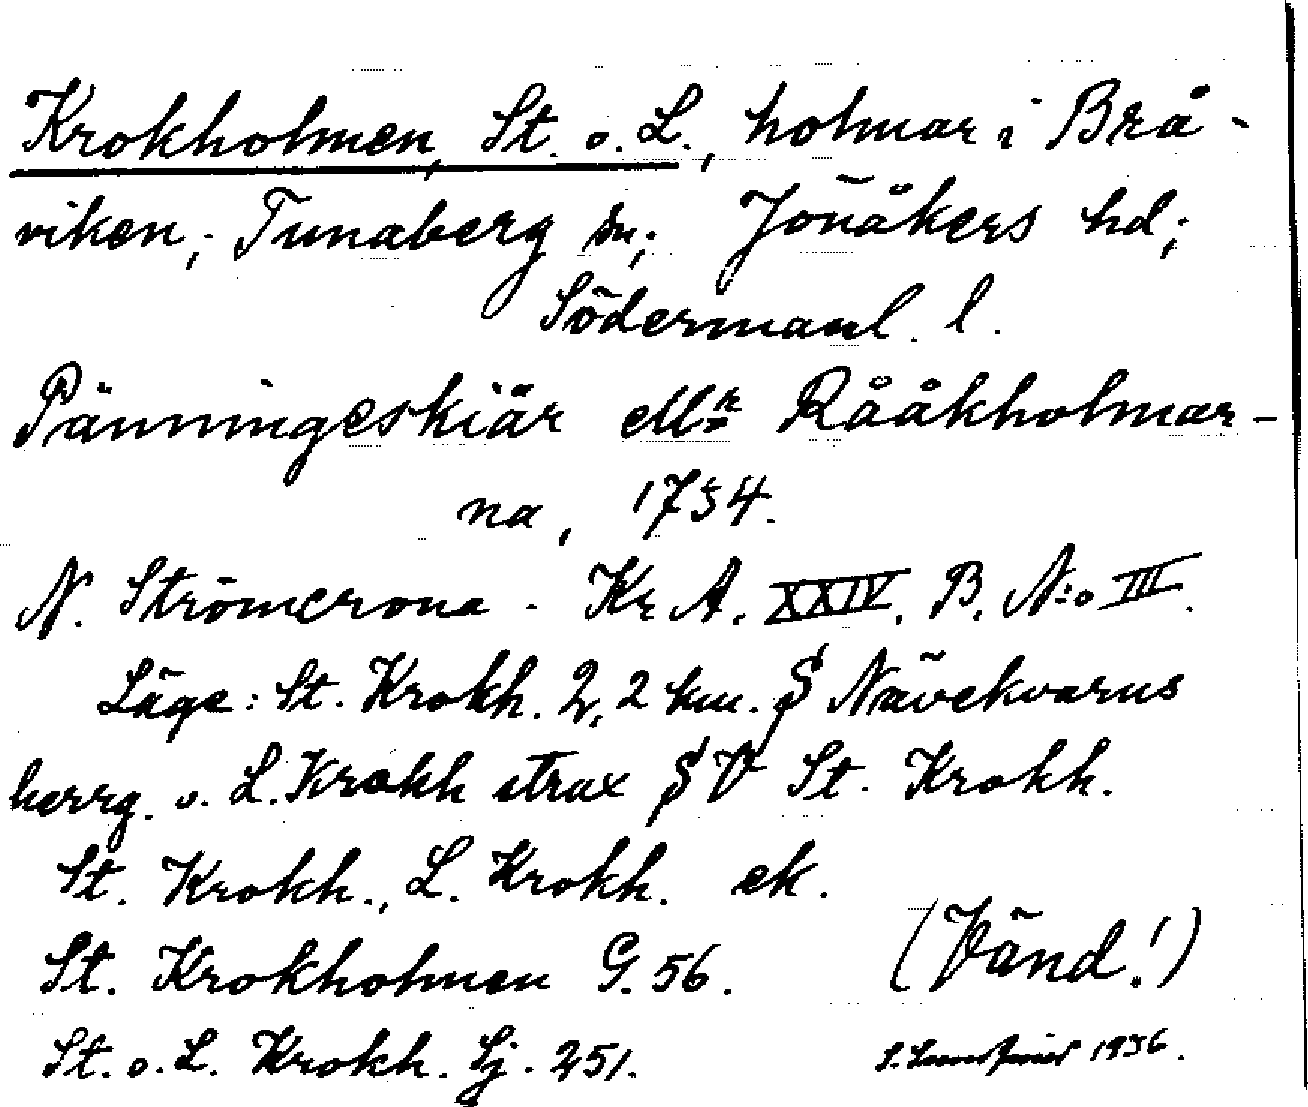 Krokholmen, St. o. L., holmar i Brå-
viken, Tunaberg sn; Jönåkers hd;
Södermanl. l.
Pänningeskiär ell<sup>r</sup> Rååkholmar-
na, 1734.
N. Strömcrona - Kr A. XXIV. B. N:o III.
Läge: St. Krokh. 2,2 km. S Nävekvarns
herrg. o. L. Krokh strax SV St. Krokh.
St. Krokh., L. Krokh. ek.
St. Krokholmen G. 56.
(Vänd!)
St. o. L. Krokh. Sj. 251.
1936.